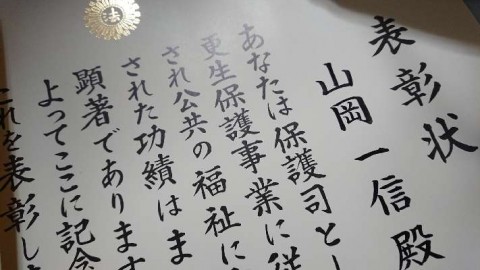 表彰状
山岡一信殿
あなたは保護司とし
更生保護事業に従
され公共の福祉に
された功績はま
顕著であります
よってここに記念
これを表彰し
法